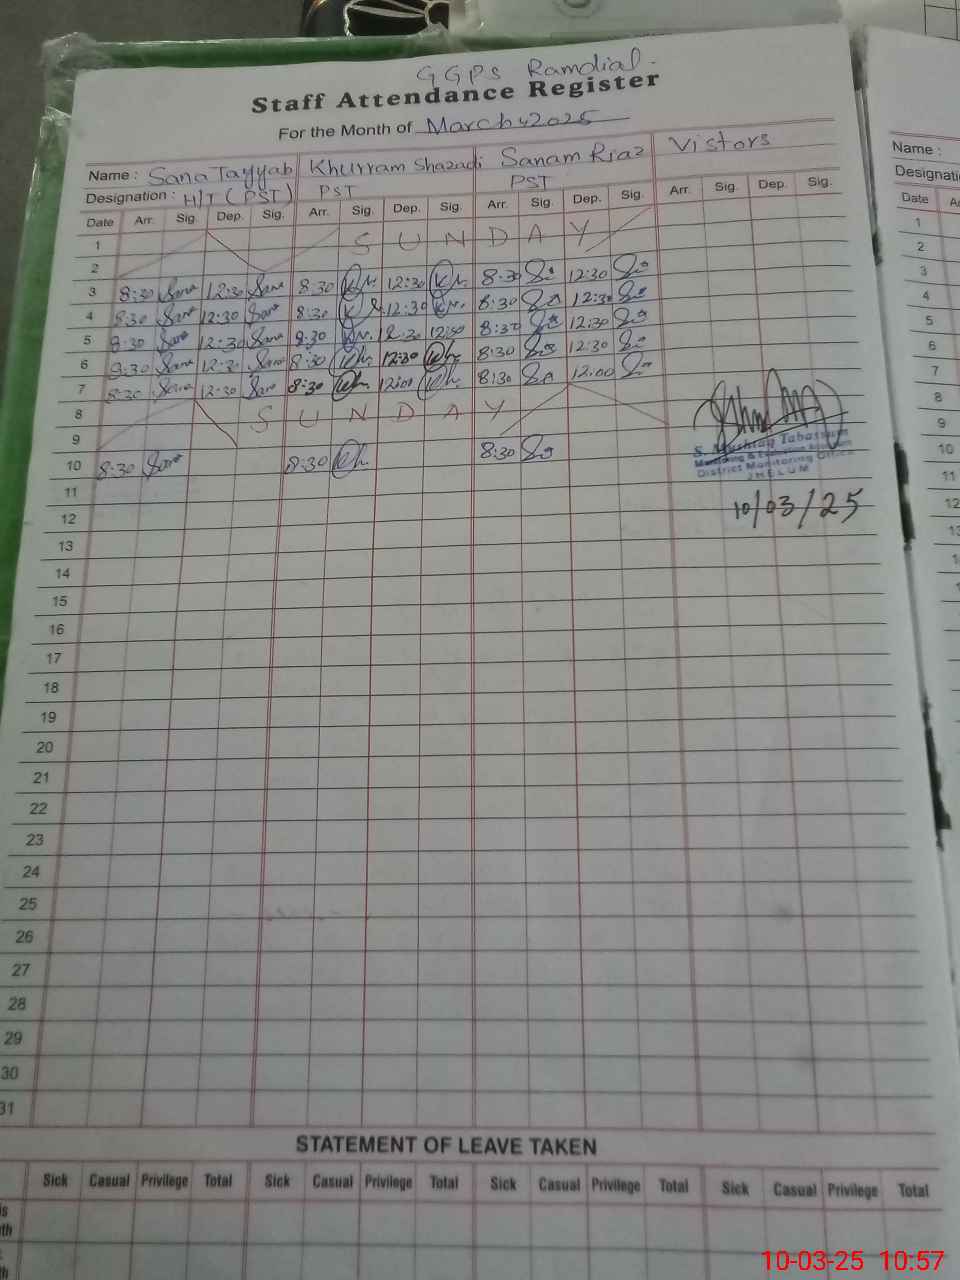 GGPS Ramdial.
Staff Attendance Register
For the Month of March, 2025
Name : Sana Tayyab Khurram Shazadi Sanam Riaz Vistors
Designation : H/T (PST) PST PST
Date Arr. Sig. Dep. Sig. Arr. Sig. Dep. Sig. Arr. Sig. Dep. Sig. Arr. Sig. Dep. Sig.
1
2 SUNDAY
3 8:30 Sana 12:30 Sana 8:30 Kh. 12:30 Kh. 8:30 12:30
4 8:30 Sana 12:30 Sana 8:30 12:30 8:30 12:30
5 8:30 Sana 12:30 Sana 8:30 12:30 12:30 8:30 12:30
6 8:30 Sana 12:30 Sana 8:30 Kh. 12:30 Kh. 8:30 12:30
7 8:30 Sana 12:30 Sana 8:30 Kh. 12:00 Kh. 8:30 12:00
8
9 SUNDAY
10 8:30 Sana 8:30 Kh 8:30
S. Mushtaq Tabassum
Monitoring & Evaluation Assistant
District Monitoring Office
JHELUM
10/03/25
11
12
13
14
15
16
17
18
19
20
21
22
23
24
25
26
27
28
29
30
31
STATEMENT OF LEAVE TAKEN
Sick Casual Privilege Total Sick Casual Privilege Total Sick Casual Privilege Total Sick Casual Privilege Total
Name :
Designati
Date
1
2
3
4
5
6
7
8
9
10
11
12
10-03-25 10:57